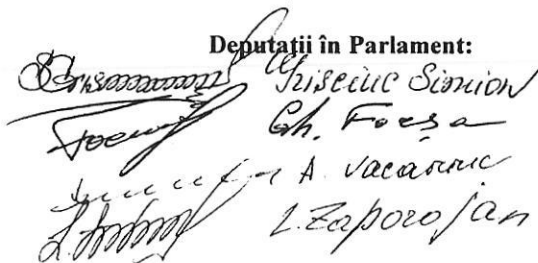 Deputații în Parlament:
Grisciuc Simion
Gh. Focșa
A. Vacarciuc
L. Zaporojan